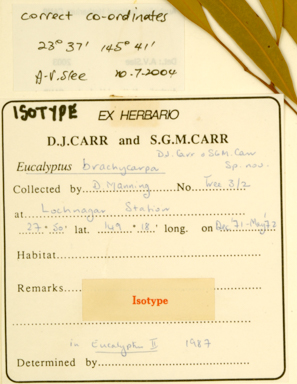 correct co-ordinates
23° 37' 145° 41'
A.V. Slee 20.7.2004
ISOTYPE EX HERBARIO
D.J.CARR and S.G.M.CARR
D.J. Carr & S.G.M. Carr
Eucalyptus brachycarpa Sp. nov.
Collected by D. Manning No. Tree 3/2
at Lochnagar Station
27° 50' lat. 149° 18' long. on Dec 71 - May 72
Habitat
Remarks
Isotype
in Eucalyptus II 1987
Determined by